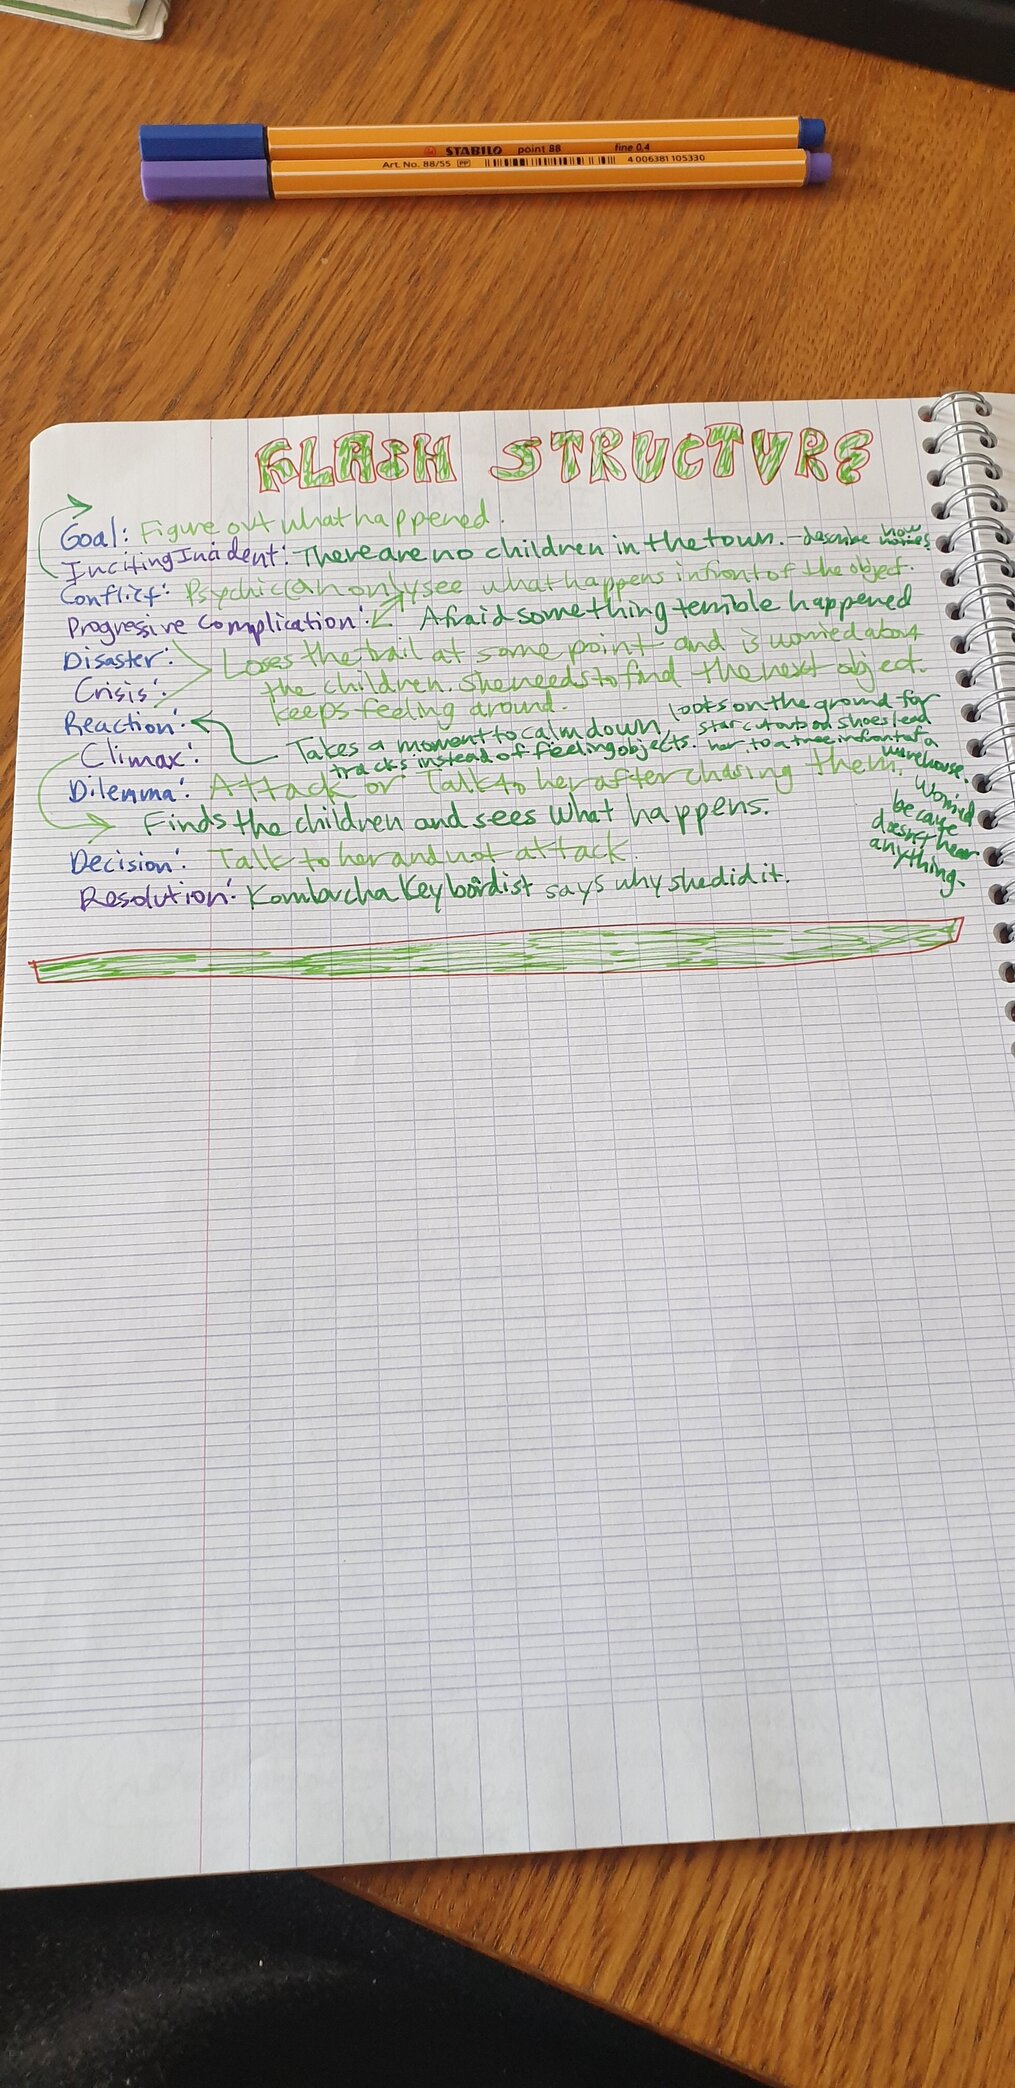 STABILO point 88 fine 0.4
Art. No. 88/55 PP 4 006381 105330
FLASH STRUCTURE
Goal: Figure out what happened.
Inciting Incident: There are no children in the town. - describe how
Conflict: Psychic can only see what happens infront of the object.
Progressive Complication: Afraid something terrible happened
Disaster: Loses the trail at some point and is worried about
Crisis: the children. She needs to find the next object.
keeps feeling around.
Reaction: Takes a moment to calm down, looks on the ground for
tracks instead of feeling objects. star cutouts on shoes lead
her to a tree infront of a
warehouse.
Worried
because
doesn't hear
anything.
Climax:
Dilemma: Attack or Talk to her after chasing them.
Finds the children and sees what happens.
Decision: Talk to her and not attack.
Resolution: Kombucha Keyboardist says why she did it.